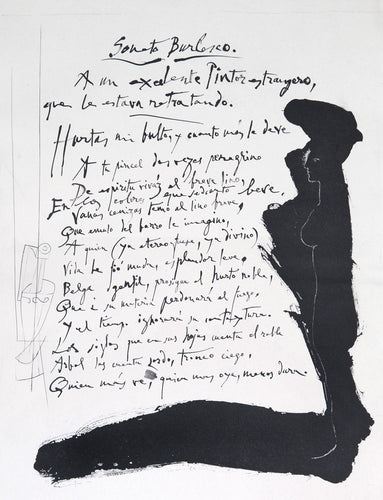 Soneto Burlesco.
A un exelente Pintor estrangero,
que le estava retratando.
Hurtas mi bulto, y cuanto más le deve
A tu pincel dos vezes peregrino
De espiritu vivaz el breve lino,
En los colores que sediento beve,
Vanas cenizas temo al lino breve,
Que emulo del barro le imagino,
A quien (ya etereo fuese, ya divino)
Vida le fió muda, esplendor leve,
Belga gentil, prosigue el hurto noble,
Que a su materia perdonará el fuego,
Y el tiempo ignorará su contextura.
Los siglos que en sus hojas cuenta el roble
Arbol los cuenta sordo, tronco ciego,
Quien más ve, quien mas oye, menos dura.